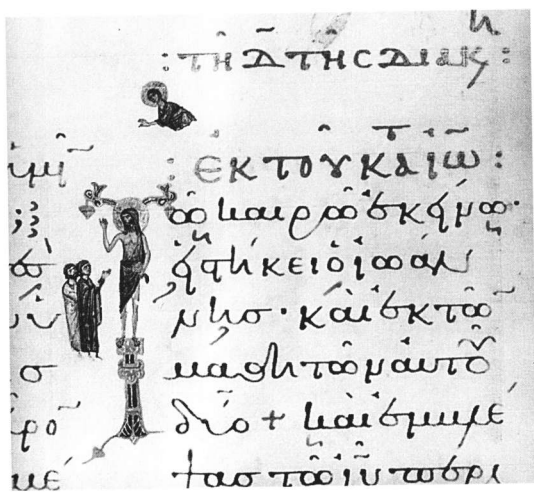 : τῆ Δ̅ τῆς διακ :
: ἐκ τοῦ κα ἰω̅ :
Τῶ καιρῶ ἐκείνω·
ἡστήκει ὁ ἰωάν
νησ· καὶ ἐκ τῶ
μαθητῶν αὐτοῦ
δύο + καὶ ἐμβλέ
ψας τῶ ἰυ̅ περι